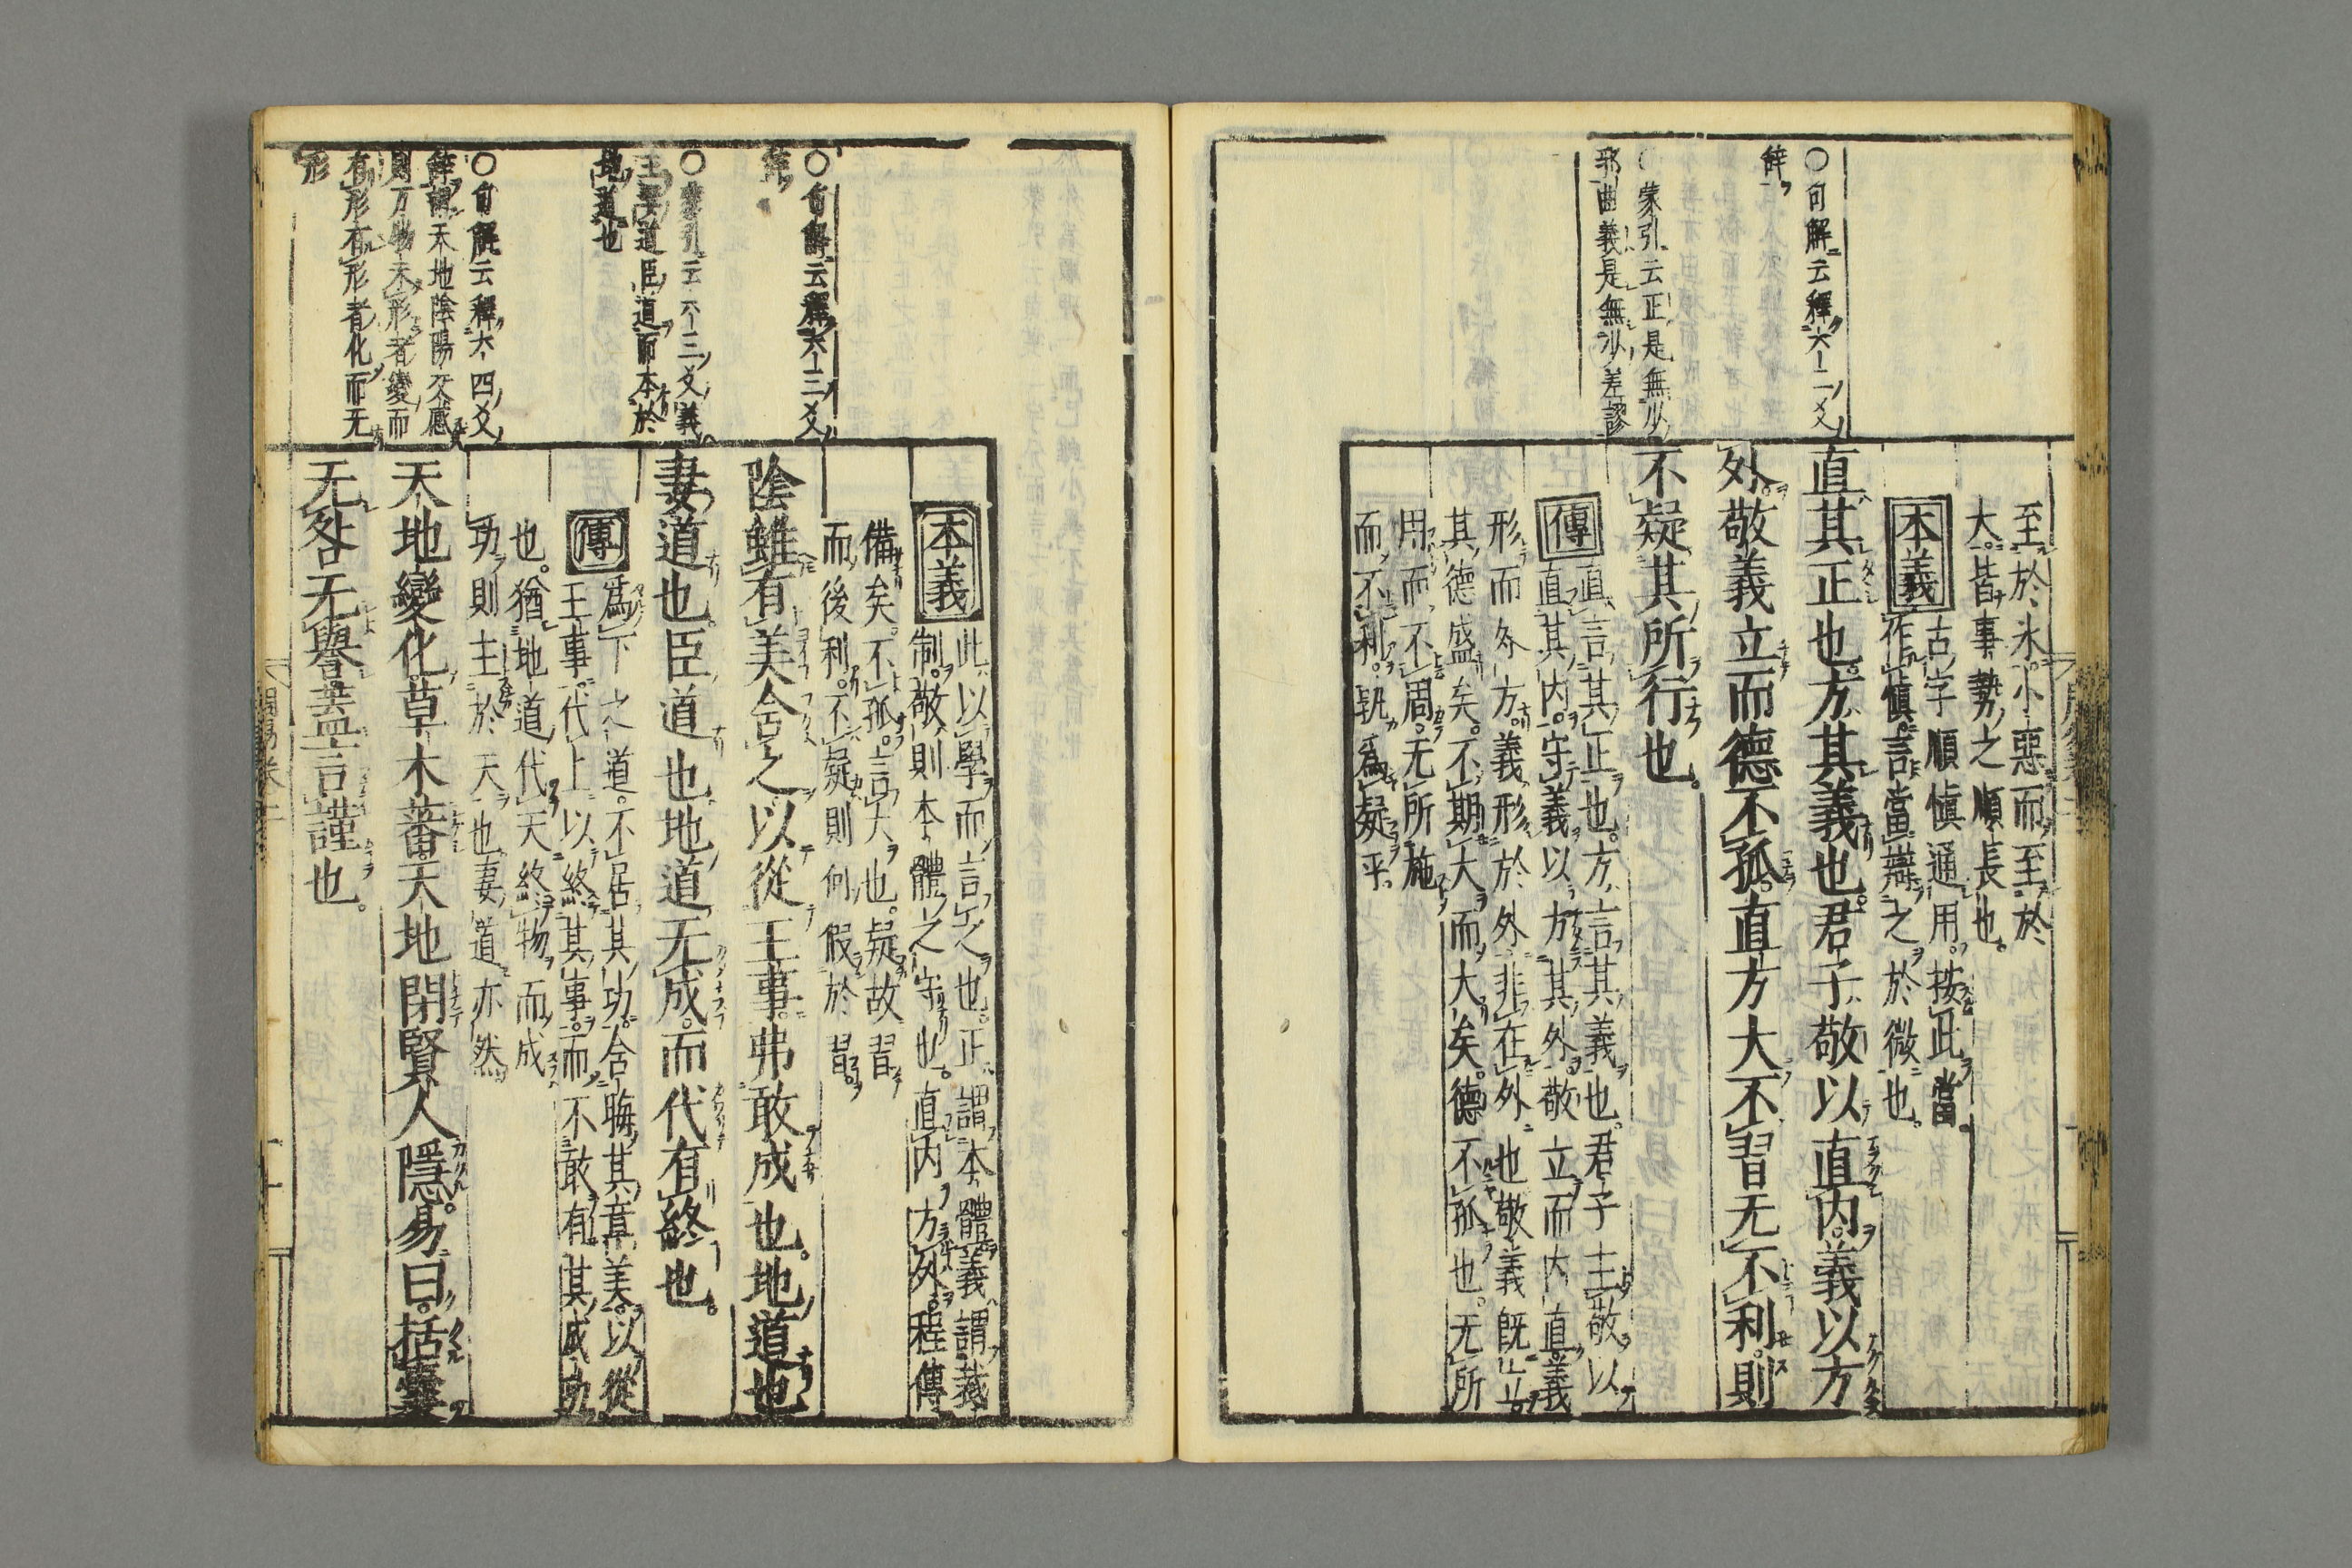 ○句解云釋六二爻
辭
蒙引云正是無少
邪曲義是無少差謬
至於氷小惡而至於
大皆事勢之順長也
本義
古字順愼通用按此當
作愼言當辯之於微也
直其正也方其義也君子敬以直內義以方
外敬義立而德不孤直方大不習无不利則
不疑其所行也
傳
直言其正也方言其義也君子主敬以
直其內守義以方其外敬立而內直義
形而外方義形於外非在外也敬義既立
其德盛矣不期大而大矣德不孤也无所
用而不周无所施
而不利孰爲疑乎
○句解云釋六三爻
辭
○蒙引云六三爻義
主妻道臣道而本於
地道也
○句解云釋六四爻
辭謂天地陰陽交感
則万物未形者變而
有形有形者化而无
形
本義
此以學而言之也正謂本體義謂裁
制敬則本體之守也直內方外程傳
備矣不孤言大也疑故習
而後利不疑則何假於習
陰雖有美含之以從王事弗敢成也地道也
妻道也臣道也地道无成而代有終也
傳
爲下之道不居其功含晦其章美以從
王事代上以終其事而不敢有其成功
也猶地道代天終物而成
功則主於天也妻道亦然
天地變化草木蕃天地閉賢人隱易曰括囊
无咎无譽蓋言謹也